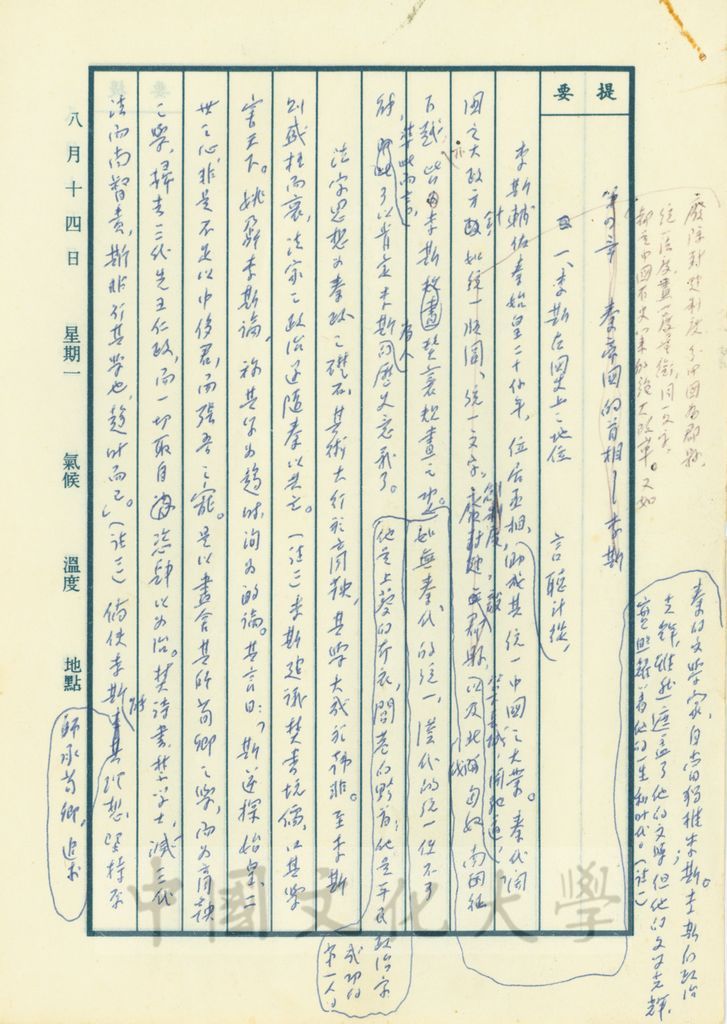 提要
廢除封建制度，分中國為郡縣，
統一法度，畫一度量衡，同一文字，
都是中國有史以來的強大改革。又如
第四章 秦帝國的首相～李斯
一、李斯在國史上之地位 言聽計從，
李斯輔佐秦始皇二十餘年，位居丞相，助成其統一中國之大業。秦代開
國之大政方針如統一帷幄、統一文字、創制度，廢封建立郡縣，以及北伐匈奴，南開征
百越，皆李斯擘畫贊襄起畫之功。如無秦代的統一，漢代的統一做不了
準此而言，了以肯定李斯有人歷史意義了。他是上蔡的布衣，閭巷的黔首，他是平民政治家
成功的
第一人。
法家思想為秦政之礎石，其術大行於商鞅，其學大成於韓非。至李斯
則盛極而衰，法家之政治運隨秦以共亡。（註三）李斯建議焚書坑儒，以其學
害天下。姚鼐李斯論，稱其行為趨時，洵為的論。其言曰：「斯逆探始皇、二
世之心，非是不足以中侈君，而張吾之寵。是以盡舍其師荀卿之學，而為商鞅
之學，掃去三代先王仁政，而一切取自恣肆以為治。焚詩書，禁學士，滅三代
法而尚督責，斯非行其學也，趨時而已。」（註三）倘使李斯 理想，堅持不
師承荀卿，追求
秦的文學家，自當獨推李斯。李斯的政治
光輝，雖然遮蓋了他的文學；但他的文字光輝，
實照耀著他的一生和時代。（註一）
八月十四日 星期一 氣候 溫度 地點
中國文化大學